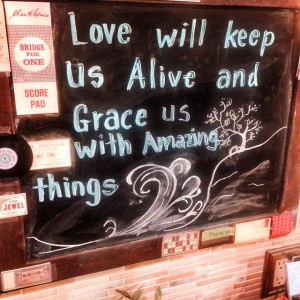 BRIDGE
FOR
ONE
SCORE
PAD
Love will keep
us Alive and
Grace us
with Amazing
things
JEWEL
Thank you